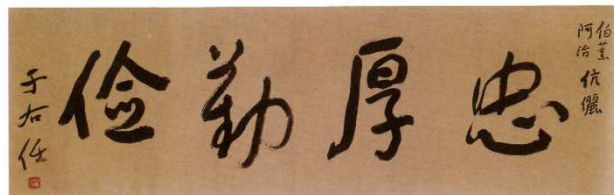 伯薰
阿治伉儷
忠厚勤儉
于右任